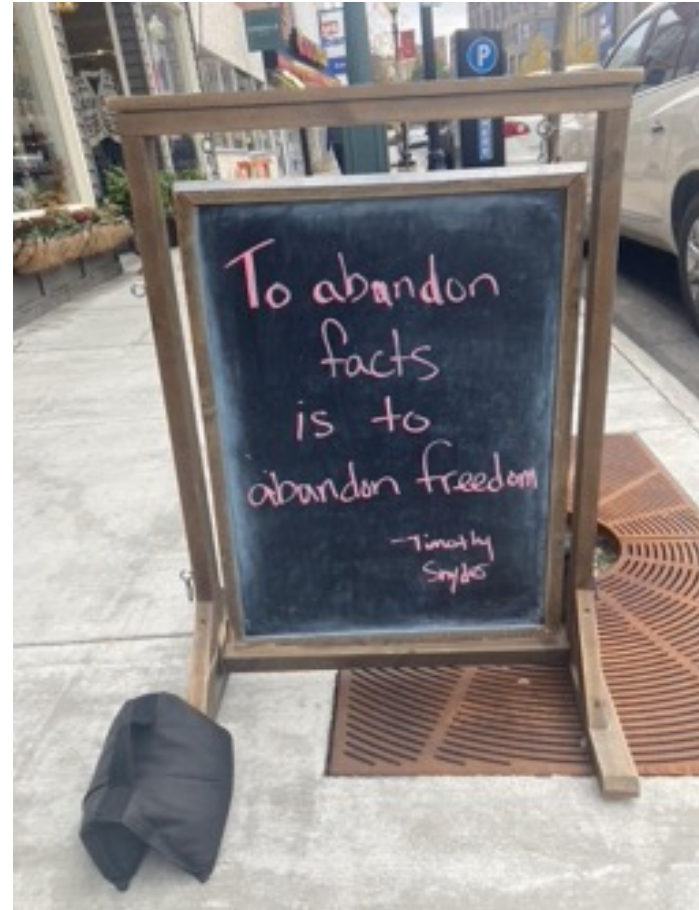 P
To abandon
facts
is to
abandon freedom
-Timothy
Snyder